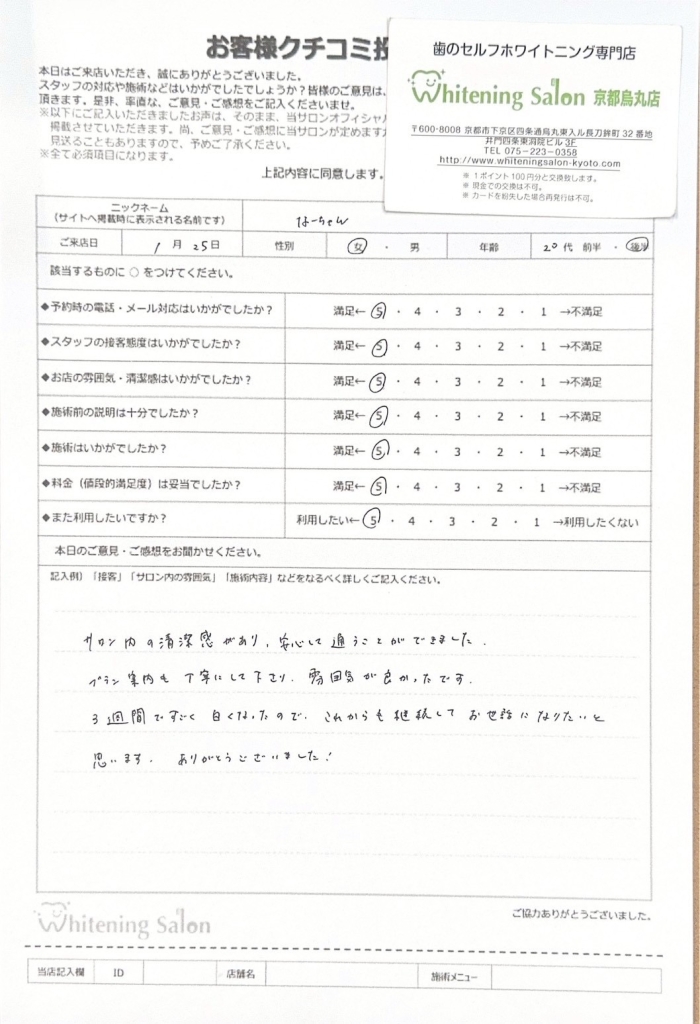 お客様クチコミ投
本日はご来店いただき、誠にありがとうございました。
スタッフの対応や施術などはいかがでしたでしょうか?皆様のご意見は、
頂きます。是非、率直な、ご意見・ご感想をご記入くださいませ。
※以下にご記入いただきましたお声は、そのまま、当サロンオフィシャル
掲載させていただきます。尚、ご意見・ご感想に当サロンが定めますガ
見送ることもありますので、予めご了承ください。
※全て必須項目になります。
上記内容に同意します。
歯のセルフホワイトニング専門店
Whitening Salon 京都烏丸店
〒600-8008 京都市下京区四条通烏丸東入ル長刀鉾町 32 番地
井門四条東洞院ビル 3F
TEL 075-223-0358
http://www.whiteningsalon-kyoto.com
※ 1ポイント100円分と交換致します。
※ 現金での交換は不可。
※ カードを紛失した場合再発行は不可。
ニックネーム
(サイトへ掲載時に表示される名前です) なーちゃん
ご来店日 1 月 25 日 性別 女 ・ 男 年齢 20 代 前半 ・ 後半
該当するものに ○ をつけてください。
◆予約時の電話・メール対応はいかがでしたか? 満足← 5 ・ 4 ・ 3 ・ 2 ・ 1 →不満足
◆スタッフの接客態度はいかがでしたか? 満足← 5 ・ 4 ・ 3 ・ 2 ・ 1 →不満足
◆お店の雰囲気・清潔感はいかがでしたか? 満足← 5 ・ 4 ・ 3 ・ 2 ・ 1 →不満足
◆施術前の説明は十分でしたか? 満足← 5 ・ 4 ・ 3 ・ 2 ・ 1 →不満足
◆施術はいかがでしたか? 満足← 5 ・ 4 ・ 3 ・ 2 ・ 1 →不満足
◆料金(値段的満足度)は妥当でしたか? 満足← 5 ・ 4 ・ 3 ・ 2 ・ 1 →不満足
◆また利用したいですか? 利用したい← 5 ・ 4 ・ 3 ・ 2 ・ 1 →利用したくない
本日のご意見・ご感想をお聞かせください。
記入例)「接客」「サロン内の雰囲気」「施術内容」などをなるべく詳しくご記入ください。
サロン内の清潔感があり、安心して通うことができました。
プラン案内も丁寧にして下さり、雰囲気が良かったです。
3週間ですごく白くなったので、これからも継続してお世話になりたいと
思います。ありがとうございました!
Whitening Salon
ご協力ありがとうございました。
当店記入欄 ID 店舗名 施術メニュー